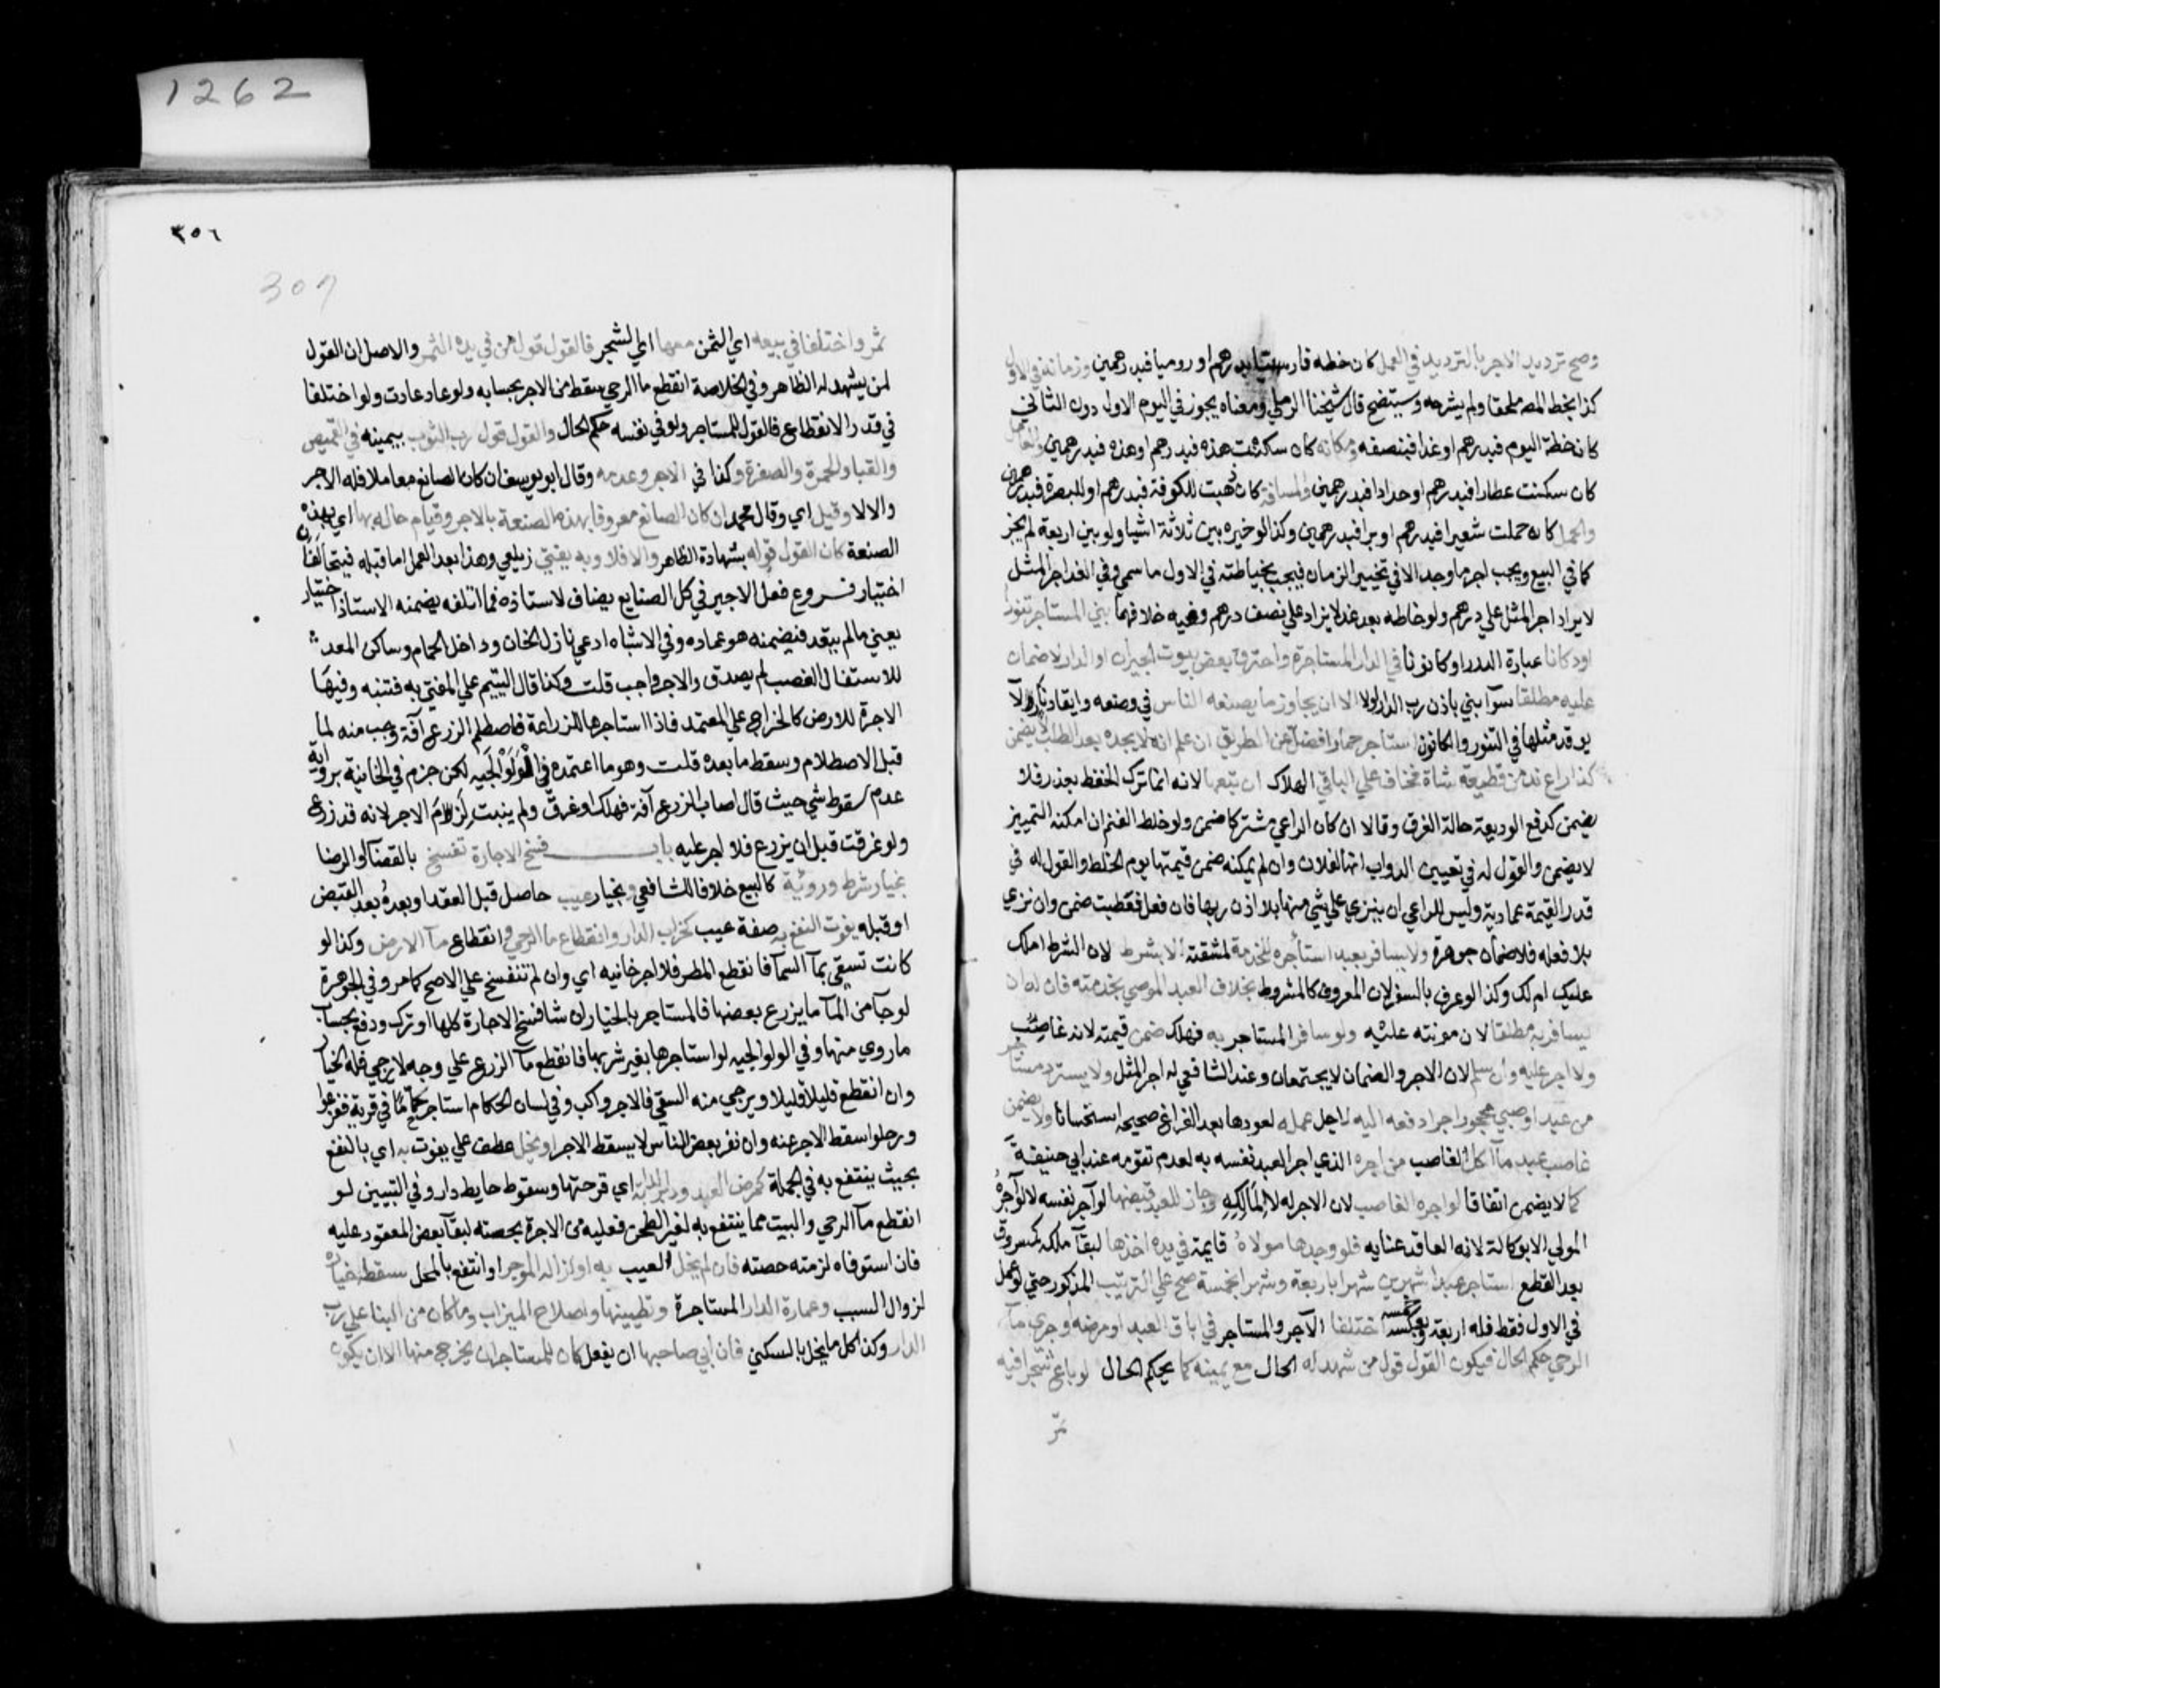 وصح ترديد الاجر بالترديد في العمل كان خطه فارسيا بدرهم او روميا فبدرهمين وزمانه في الاول
كذا بخط المص ملحقا ولم يشرحه وسيتضح قال شيخنا الرملي ومعناه يجوز في اليوم الاول دون الثاني
كان خطته اليوم فبدرهم او غدا فبنصفه ومكانه كان سكنت هذه فبدرهم وهذه فبدرهمين والعامل
كان سكنت عطارا فبدرهم او حدادا فبدرهمين والمسافة كان ذهبت للكوفة فبدرهم او للبصرة فبدرهمين
والحمل كان حملت شعيرا فبدرهم او برا فبدرهمين وكذا لو خيره بين ثلاثة اشيا ولو بين اربعة لم يجز
كما في البيع ويجب اجر ما وجد الا في تخيير الزمان فيجب بخياطته في الاول ما سمي وفي الغد اجر المثل
لا يزاد اجر المثل علي درهم ولو خاطه بعد غد لا يزاد علي نصف درهم وفيه خلافهما بني المستاجر تنورا
او دكانا عبارة الدرر او كانونا في الدار المستاجرة واحترق بعض بيوت الجيران او الدار لا ضمان
عليه مطلقا سوآ بني باذن رب الدار او لا الا ان يجاوز ما يصنعه الناس في وضعه وايقاد نار لا
يوقد مثلها في التنور والكانون استاجر حمارا فضل عن الطريق ان علم انه لا يجده بعد الطلب لا يضمن
كذا راع ند من قطيعه شاة فخاف علي الباقي الهلاك ان تبعها لانه انما ترك الحفظ بعذر فلا
يضمن كدفع الوديعة حالة الغرق وقالا ان كان الراعي مشتركا ضمن ولو خلط الغنم ان امكنه التمييز
لا يضمن والقول له في تعيين الدواب انها لفلان وان لم يمكنه ضمن قيمتها يوم الخلط والقول له في
قدر القيمة عمادية وليس للراعي ان ينزي علي شي منها بلا اذن ربها فان فعل فعطبت ضمن وان نزي
بلا فعله فلا ضمان جوهرة ولا يسافر بعبد استأجره للخدمة لمشقته الا بشرط لان الشرط املك
عليك ام لك وكذا لو عرف بالسفر لان المعروف كالمشروط بخلاف العبد الموصي بخدمته فان له ان
يسافر به مطلقا لان مونته عليه ولو سافر المستاجر به فهلك ضمن قيمته لانه غاصب
ولا اجر عليه وان سلم لان الاجر والضمان لا يجتمعان وعند الشافعي له اجر المثل ولا يسترد مستاجر
من عبد او صبي محجور اجرا دفعه اليه لاجل عمله لعودها بعد الفراغ صحيحه استحسانا ولا يضمن
غاصب عبد ما اكل الغاصب من اجره الذي اجر العبد نفسه به لعدم تقومه عند ابي حنيفة
كما لا يضمن اتفاقا لو اجره الغاصب لان الاجر له لا لمالكه وجاز للعبد قبضها لو آجر نفسه لا لو آجره
المولي الا بوكالة لانه العاقد عنايه فلو وجدها مولاه قايمة في يده اخذها لبقآ ملكه كمسروق
بعد القطع استاجر عبدا شهرين شهرا باربعة وشهرا بخمسة صح علي الترتيب المذكور حتي لو عمل
في الاول فقط فله اربعة وبعكسه خمسه اختلفا الآجر والمستاجر في اباق العبد او مرضه او جري مآ
الرحي حكم الحال فيكون القول قول من شهد له الحال مع يمينه كما يحكم الحال لو باع شجرا فيه
ثمر
1262
٣٥٦
307
ثمر واختلفا في بيعه اي الثمن معها اي الشجر فالقول قول من في يده الثمر والاصل ان القول
لمن يشهد له الظاهر وفي الخلاصة انقطع ما الرحي سقط من الاجر بحسابه ولو عاد عادت ولو اختلفا
في قدر الانقطاع فالقول للمستاجر ولو في نفسه حكم الحال والقول قول رب الثوب بيمينه في القميص
والقبا والحمرة والصفرة وكذا في الاجر وعدمه وقال ابو يوسف ان كان الصانع معاملا فله الاجر
والا لا وقيل اي وقال محمد ان كان الصانع معروفا بهذه الصنعة بالاجر وقيام حاله بها اي بهذه
الصنعة كان القول قوله بشهادة الظاهر والا فلا وبه يفتي زيلعي وهذا بعد العمل اما قبله فيتحالفان
اختيار فروع فعل الاجير في كل الصنايع يضاف لاستاذه فما اتلفه يضمنه الاستاذ اختيار
يعني مالم يتعد فيضمنه هو عماديه وفي الاشباه ادعي نازل الخان وداخل الحمام وساكن المعد
للاستغلال الغصب لم يصدق والاجر واجب قلت وكذا قال اليتيم علي المفتي به فتنبه وفيها
الاجرة للارض كالخراج علي المعتمد فاذا استاجرها للزراعة فاصطلم الزرع آفة وجب منه لما
قبل الاصطلام وسقط ما بعده قلت وهو ما اعتمده في الولوالجيه لكن جزم في الخانية برواية
عدم سقوط شي حيث قال اصاب الزرع آفة فهلك او غرق ولم ينبت لزم الاجر لانه قد زرع
ولو غرقت قبل ان يزرع فلا اجر عليه باب فسخ الاجارة تفسخ بالقضا او الرضا
بخيار شرط وروية كالبيع خلافا للشافعي وبخيار عيب حاصل قبل العقد او بعده بعد القبض
او قبله يفوت النفع به صفة عيب كخراب الدار وانقطاع ما الرحي وانقطاع مآ الارض وكذا لو
كانت تسقي بمآ السمآ فانقطع المطر فلا اجر خانيه اي وان لم تنفسخ علي الاصح كما مر وفي الجوهرة
لو جآ من المآ ما يزرع بعضها فالمستاجر بالخيار ان شا فسخ الاجارة كلها او ترك ودفع بحساب
ما روي منها وفي الولوالجيه لو استاجرها بغير شربها فانقطع مآ الزرع علي وجه لا يرجي فله الخيار
وان انقطع قليلا قليلا ويرجي منه السقي فالاجر واجب وفي لسان الحكام استاجر حماما في قرية ففزعوا
ورحلوا سقط الاجر عنه وان نفر بعض الناس لا يسقط الاجر او يخل عطف علي يفوت به اي بالنفع
بحيث ينتفع به في الجملة كمرض العبد ودبر الدابة اي قرحتها وسقوط حايط دار وفي التبيين لو
انقطع مآ الرحي والبيت مما ينتفع به لغير الطحن فعليه من الاجرة بحصته لبقآ بعض المعقود عليه
فان استوفاه لزمته حصته فان لم يخل العيب به او ازاله الموجر او انتفع بالمخل سقط خياره
لزوال السبب وعمارة الدار المستاجرة وتطيينها واصلاح الميزاب وما كان من البنا علي رب
الدار وكذا كل ما يخل بالسكني فان ابي صاحبها ان يفعل كان للمستاجر ان يخرج منها الا ان يكون